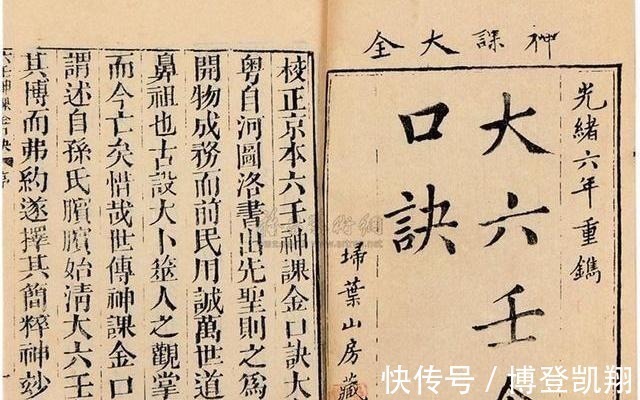 神課大全
光緒六年重鐫
大六壬金
口訣
埽葉山房藏
校正京本六壬神課金口訣大
粤自河圖洛書出先聖則之為
開物成務而前民用誠萬世道
鼻祖也古設大卜簭人之觀掌
而今亡矣惜哉世傳神課金口
謂述自孫氏臏臏始清大六壬
其博而弗約遂擇其簡粹神妙
六壬神課金口訣 序
快传号 / 博登凯翔